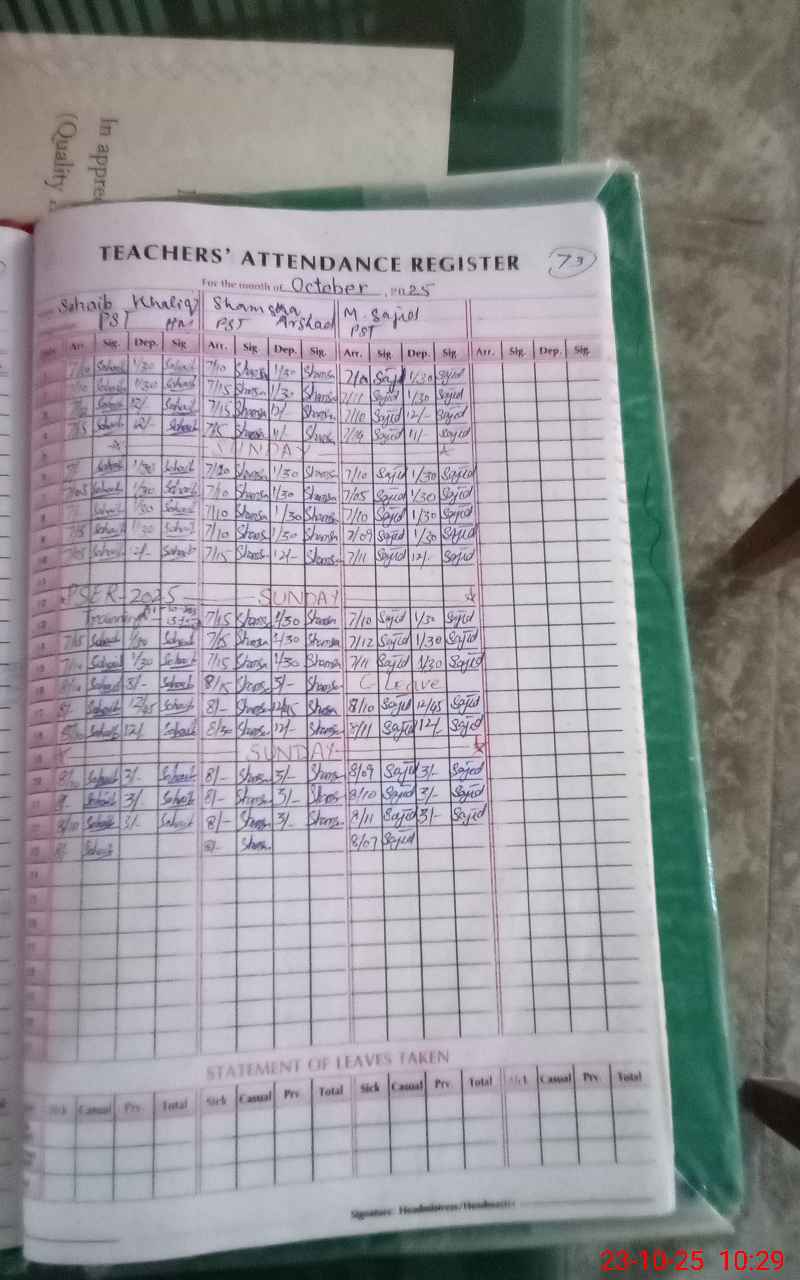 In appre
(Quality
TEACHERS' ATTENDANCE REGISTER 73
For the month of October, 2025
Sohaib Khaliq Shamsha Arshad M. Sajid
PST PST PST
Arr. Sig. Dep. Sig. Arr. Sig Dep. Sig. Arr. Sig Dep. Sig. Arr. Sig. Dep. Sig.
7/10 Sohaib 1/30 Sohaib 7/10 Shamsa 1/30 Shamsa Sajid 1/30 Sajid
Sohaib 1/30 Sohaib 7/15 Shamsa 1/30 Shamsa 7/11 Sajid 1/30 Sajid
Sohaib 12/- Sohaib 7/15 Shamsa 12/- Shamsa 7/10 Sajid 12/- Sajid
7/15 Sohaib 12/- Sohaib 7/15 Shamsa 11/- Shamsa Sajid 11/- Sajid
SUNDAY
Sohaib 1/30 Sohaib 7/20 Shamsa 1/30 Shamsa 7/10 Sajid 1/30 Sajid
Sohaib 1/30 Sohaib 7/10 Shamsa 1/30 Shamsa 7/05 Sajid 1/30 Sajid
Sohaib 1/30 Sohaib 7/10 Shamsa 1/30 Shamsa 7/10 Sajid 1/30 Sajid
7/15 Sohaib 1/30 Sohaib 7/10 Shamsa 1/30 Shamsa 7/09 Sajid 1/30 Sajid
Sohaib 12/- Sohaib 7/15 Shamsa 12/- Shamsa 7/11 Sajid 12/- Sajid
PSER-2025 SUNDAY
Training 7/15 Shamsa 1/30 Shamsa 7/10 Sajid 1/30 Sajid
7/15 Sohaib 1/30 Sohaib 7/15 Shamsa 1/30 Shamsa 7/12 Sajid 1/30 Sajid
Sohaib 1/30 Sohaib 7/15 Shamsa 1/30 Shamsa 7/11 Sajid 1/30 Sajid
Sohaib 3/- Sohaib 8/15 Shamsa 3/- Shamsa C-Leave
8/- Sohaib 12/45 Sohaib 8/- Shamsa 12/45 Shamsa 8/10 Sajid 12/45 Sajid
Sohaib 12/- Sohaib Shamsa 12/- Shamsa 8/11 Sajid 12/- Sajid
SUNDAY
8/10 Sohaib 3/- Sohaib 8/- Shamsa 3/- Shamsa 8/09 Sajid 3/- Sajid
8/- Sohaib 3/- Sohaib 8/- Shamsa 3/- Shamsa 8/10 Sajid 3/- Sajid
8/10 Sohaib 3/- Sohaib 8/- Shamsa 3/- Shamsa 8/11 Sajid 3/- Sajid
8/- Sohaib 8/- Shamsa 8/07 Sajid
STATEMENT OF LEAVES TAKEN
Sick Casual Prv. Total Sick Casual Prv Total Sick Casual Prv. Total Sick Casual Prv. Total
Signature Headmistress/Headmaster
23-10-25 10:29